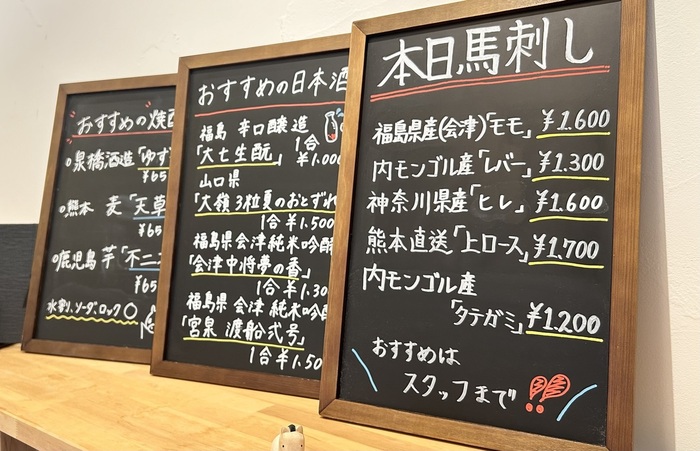 おすすめの焼酎
泉橋酒造「ゆず
¥65
熊本 麦「天草
¥65
鹿児島 芋「不二才
¥65
水割り、ソーダ、ロック○
おすすめの日本酒
福島 辛口醸造
「大七生酛」 1合
¥1.000
山口県
「大嶺3粒夏のおとずれ
1合 ¥1.500
福島県会津純米吟醸
「会津中将夢の香」
1合 ¥1.30
福島県会津 純米吟醸
「宮泉 渡船弐号」
1合 ¥1.50
本日馬刺し
福島県産(会津)「モモ」 ¥1.600
内モンゴル産「レバー」 ¥1.300
神奈川県産「ヒレ」 ¥1.600
熊本直送「上ロース」 ¥1.700
内モンゴル産
「タテガミ」 ¥1.200
おすすめは
スタッフまで!!